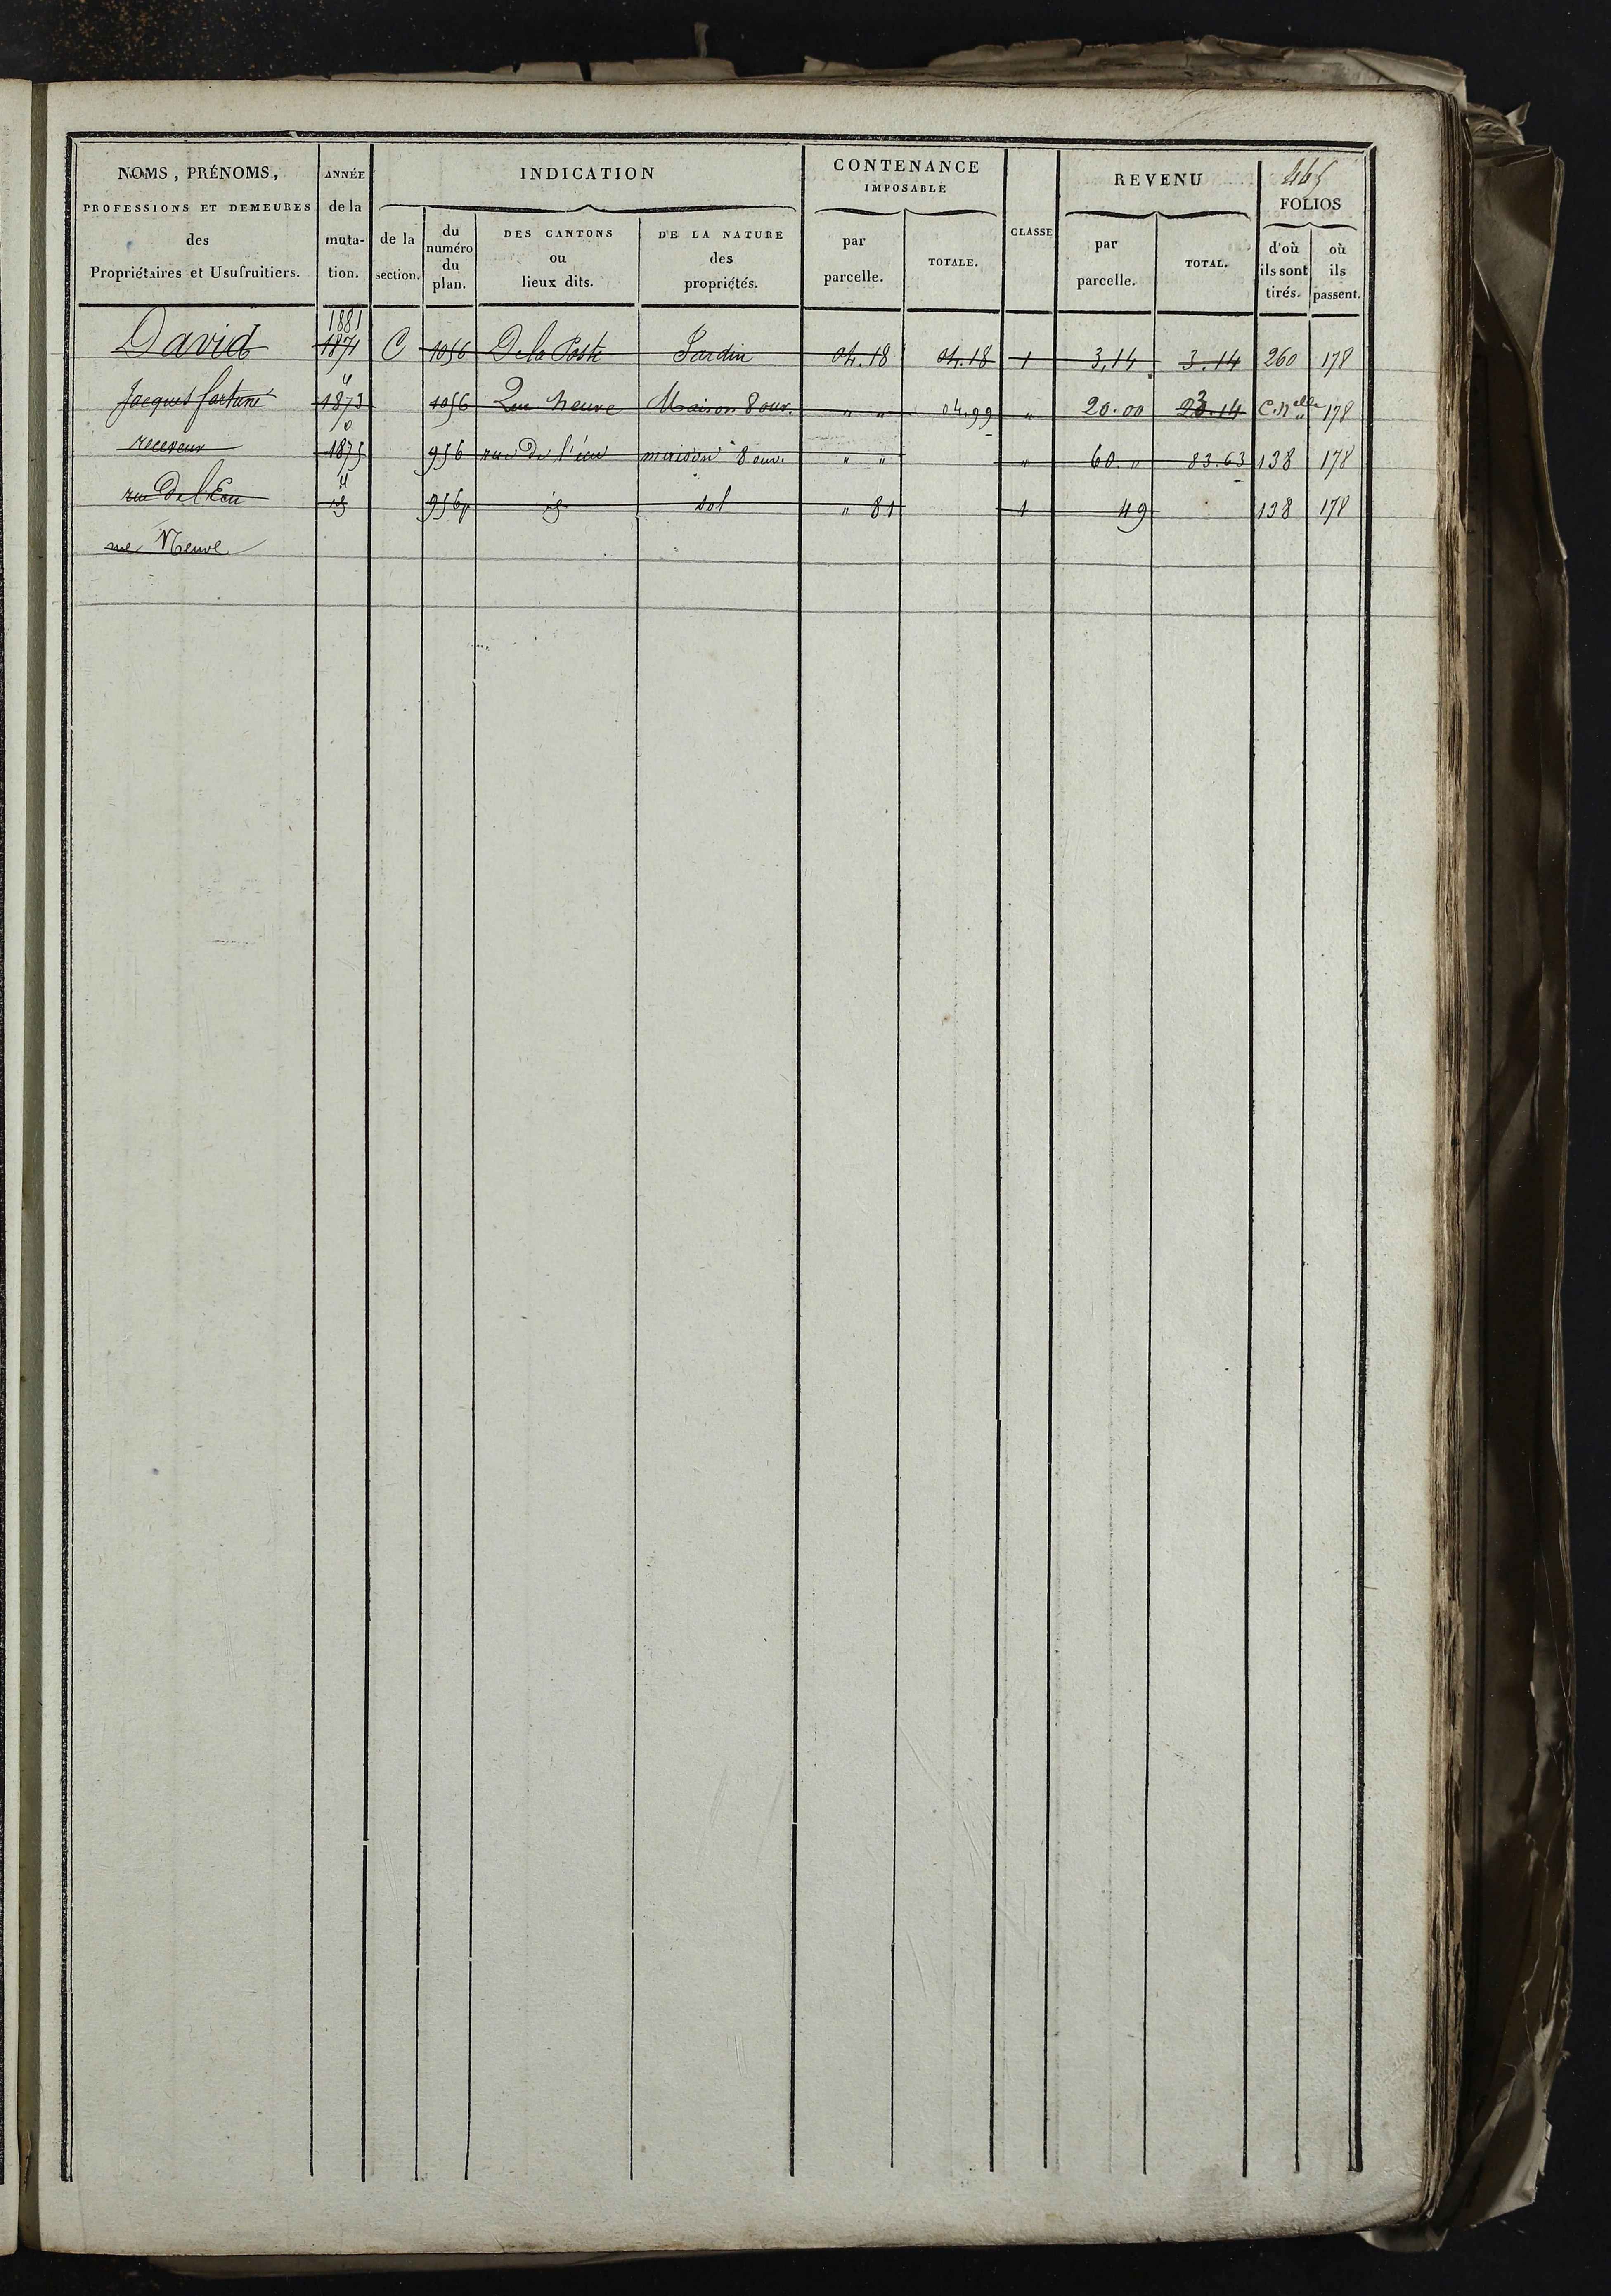 465
NOMS, PRÉNOMS,
PROFESSIONS ET DEMEURES
des
Propriétaires et Usufruitiers.
ANNÉE
de la
muta-
tion.
INDICATION
de la
section.
du
numéro
du
plan.
DES CANTONS
ou
lieux dits.
DE LA NATURE
des
propriétés.
CONTENANCE
IMPOSABLE
par
parcelle.
TOTALE.
CLASSE
REVENU
par
parcelle.
TOTAL.
FOLIOS
d'où
ils sont
tirés.
où
ils
passent.
1881
David 1871 C 1056 De la Poste Jardin 04.18 04.18 1 3,14 3.14 260 178
"
Jacques fortuné 1873 1056 Rue Neuve Maison 8 ouv. " " 04.99 " 20.00 23.14 C. Nelle 178
receveur 1875 956 rue de l'écu maison 8 ouv. " " " 60. " 83.63 138 178
"
rue De l'Ecu id 956p id sol " 81 1 49 138 178
rue Neuve